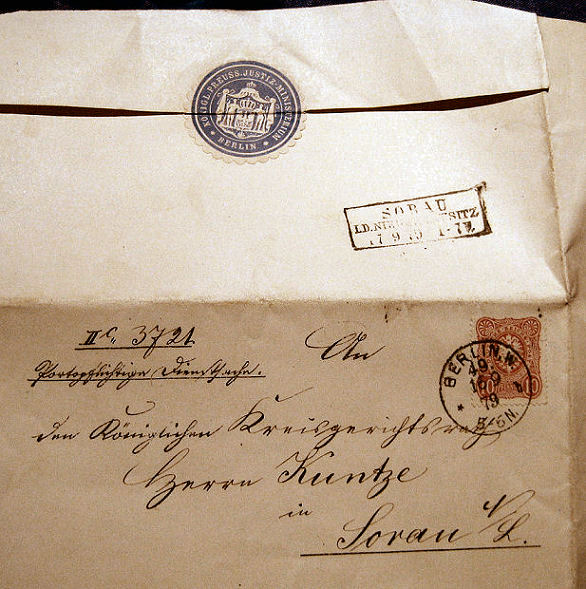 KÖNIGL. PREUSS. JUSTIZ-MINISTERIUM
* BERLIN *
SORAU
LD. SITZ
17 9 79 1-7N.
IIc. 3721
Portopflichtige Dienstsache.
An
den Königlichen Kreisgerichtsrath
Herrn Kuntze
in
Sorau i/L.
BERLIN. W.
49.
16 9
79
5/6 N.
10